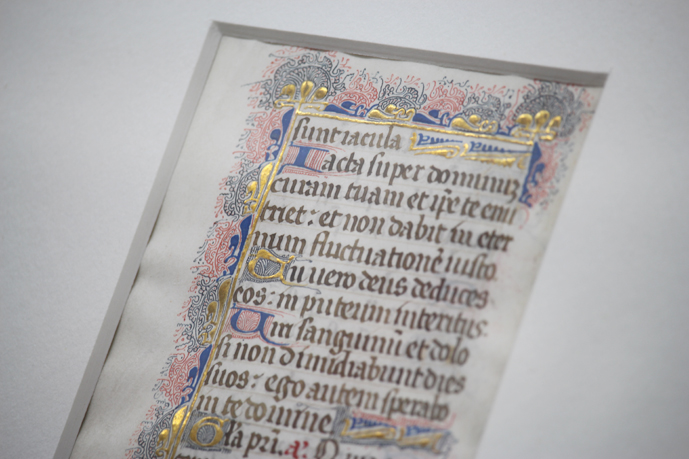 sunt iacula
Iacta super dominum
curam tuam et ip̄e te enu
triet : et non dabit in eter
num fluctuationē iusto.
Tu vero deus deduces
eos : in puteum interitus.
Viri sanguinū et dolo
si non dimidiabunt dies
suos : ego autem sperabo
in te domine
Gloria pri. a.